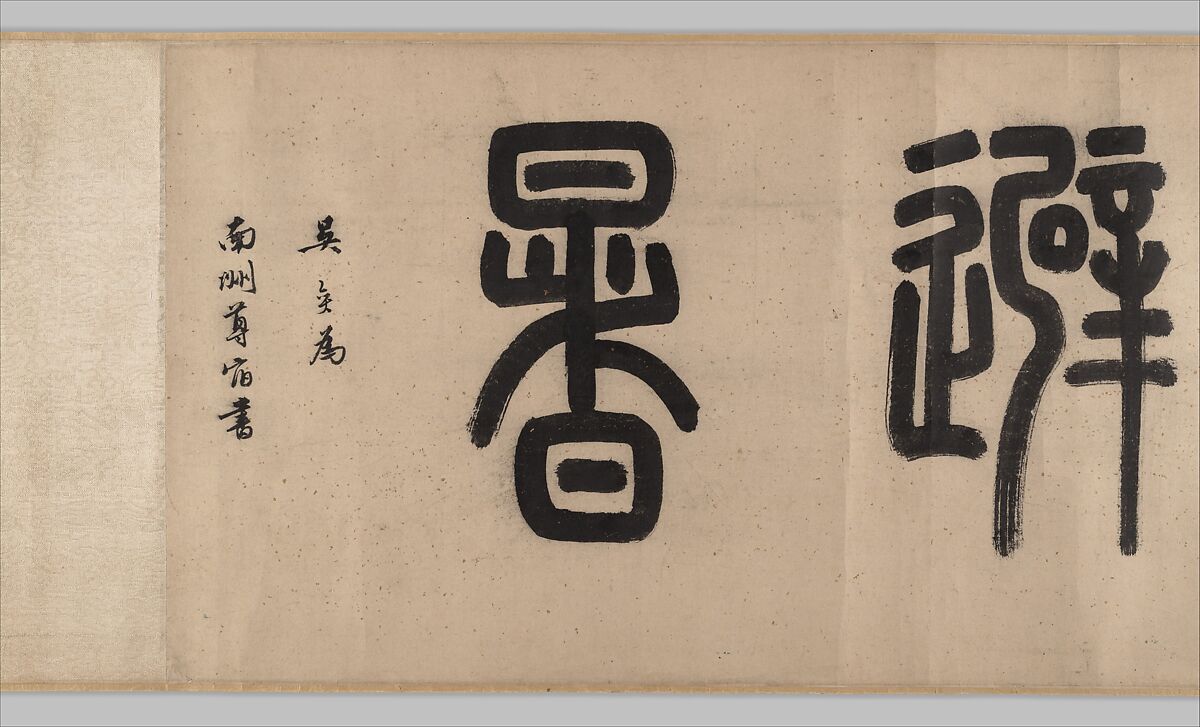 避暑
吳奕為
南洲尊宿書